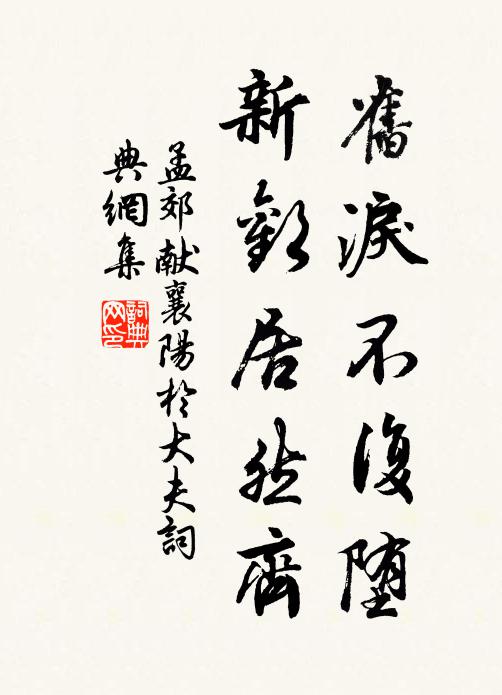 舊淚不復堕
新歡居然齊
孟郊献襄陽於大夫詞
典網集
詞典网印